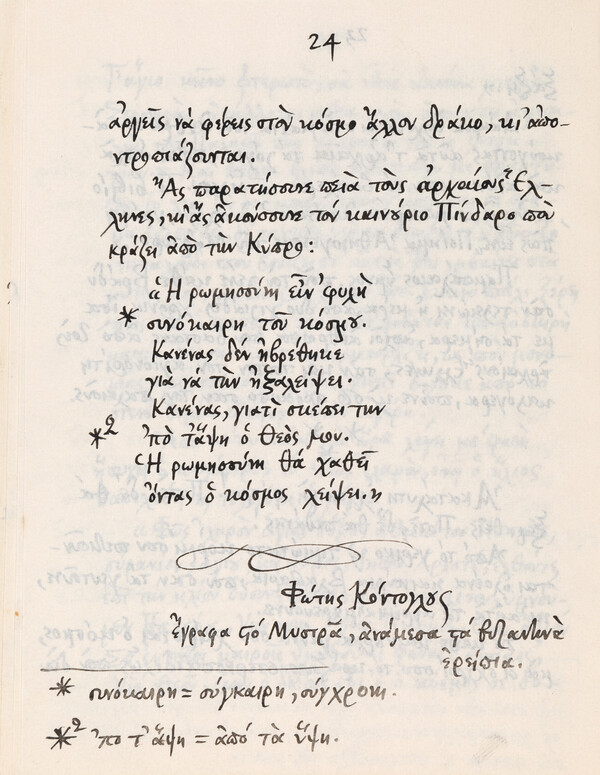 24
ἀργεῖς νὰ φέρεις στὸν κόσμο ἄλλον δράκο, κι' ἀπο-
ντροπιάζουνται.
Ἂς παρατήσουνε πειὰ τοὺς ἀρχαίους Ἕλ-
ληνες, κι' ἂς ἀκούσουνε τὸν καινούριο Πίνδαρο ποὺ
κράζει ἀπὸ τὴν Κύπρο:
«Ἡ ρωμηοσύνη εἶν' φυλὴ
* συνόκαιρη τοῦ κόσμου.
Κανένας δὲν ἠβρέθηκε
γιὰ νὰ τὴν ἠξαλείψει.
Κανένας, γιατὶ σκέπει την
*2 'πὸ τἄψη ὁ Θεός μου.
Ἡ ρωμηοσύνη θὰ χαθεῖ
ὄντας ὁ κόσμος λείψει.»
Φώτης Κόντογλους
Ἔγραφα στὸ Μυστρᾶ, ἀνάμεσα στὰ βυζαντινὰ
ἐρείπια.
* συνόκαιρη = σύγκαιρη, σύγχρονη.
*2 'πο τ' ἄψη = ἀπό τὰ ὕψη.